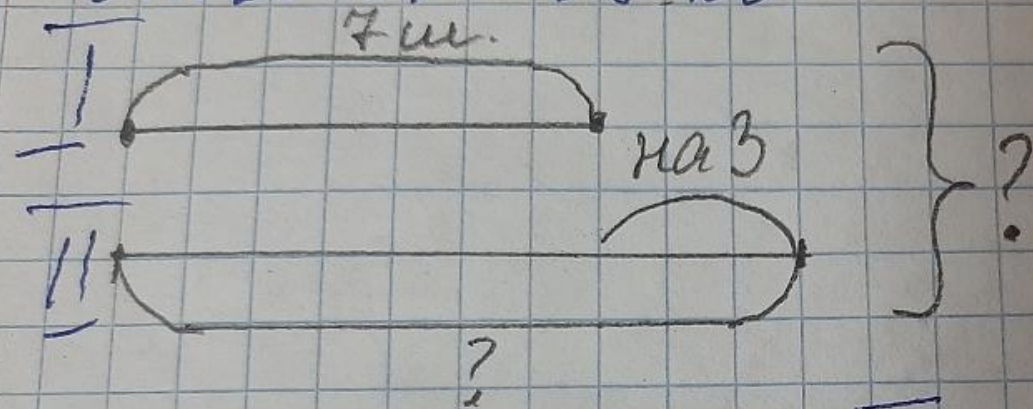 I
7 ш.
на 3
?
II
?